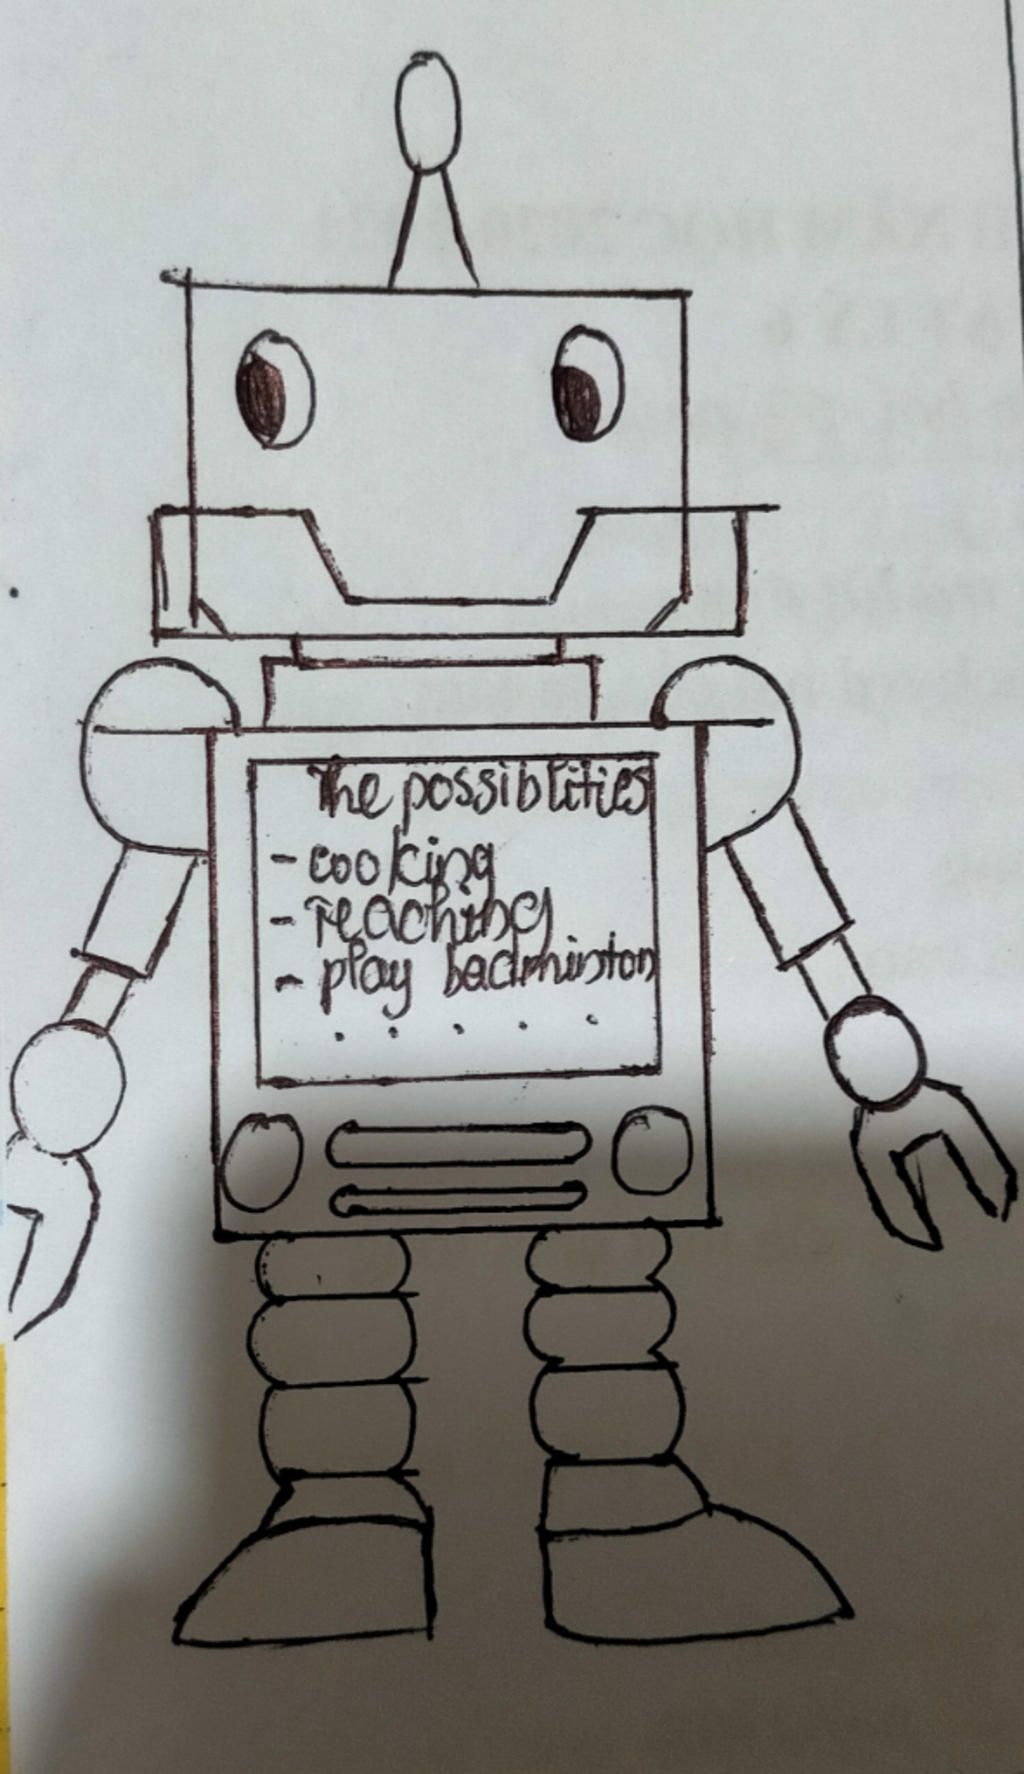 The possiblities
- cooking
- Teaching
- play badminton
. . . . .